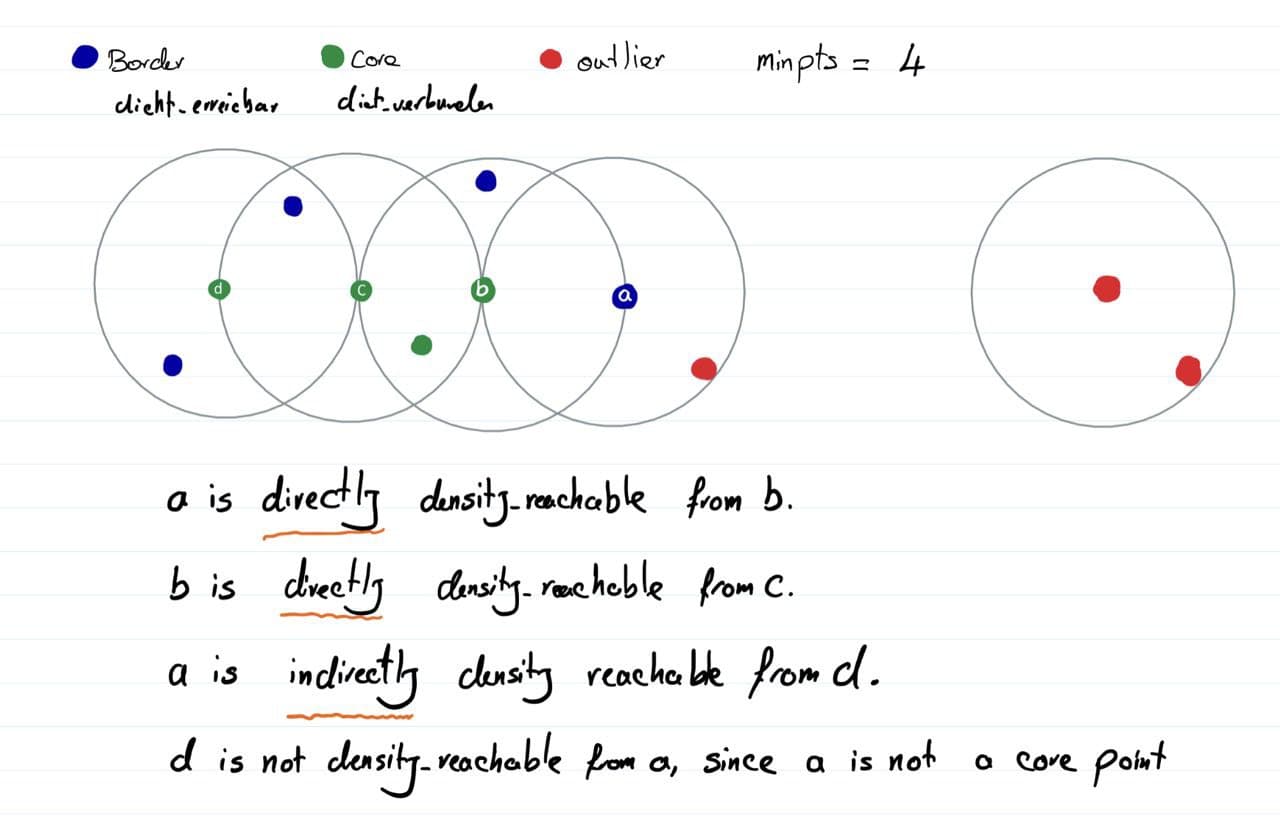 Border Core outlier minpts = 4
dicht-erreichbar dict-verbunden
d c b a
a is directly density-reachable from b.
b is directly density-reachable from c.
a is indirectly density reachable from d.
d is not density-reachable from a, since a is not a core point